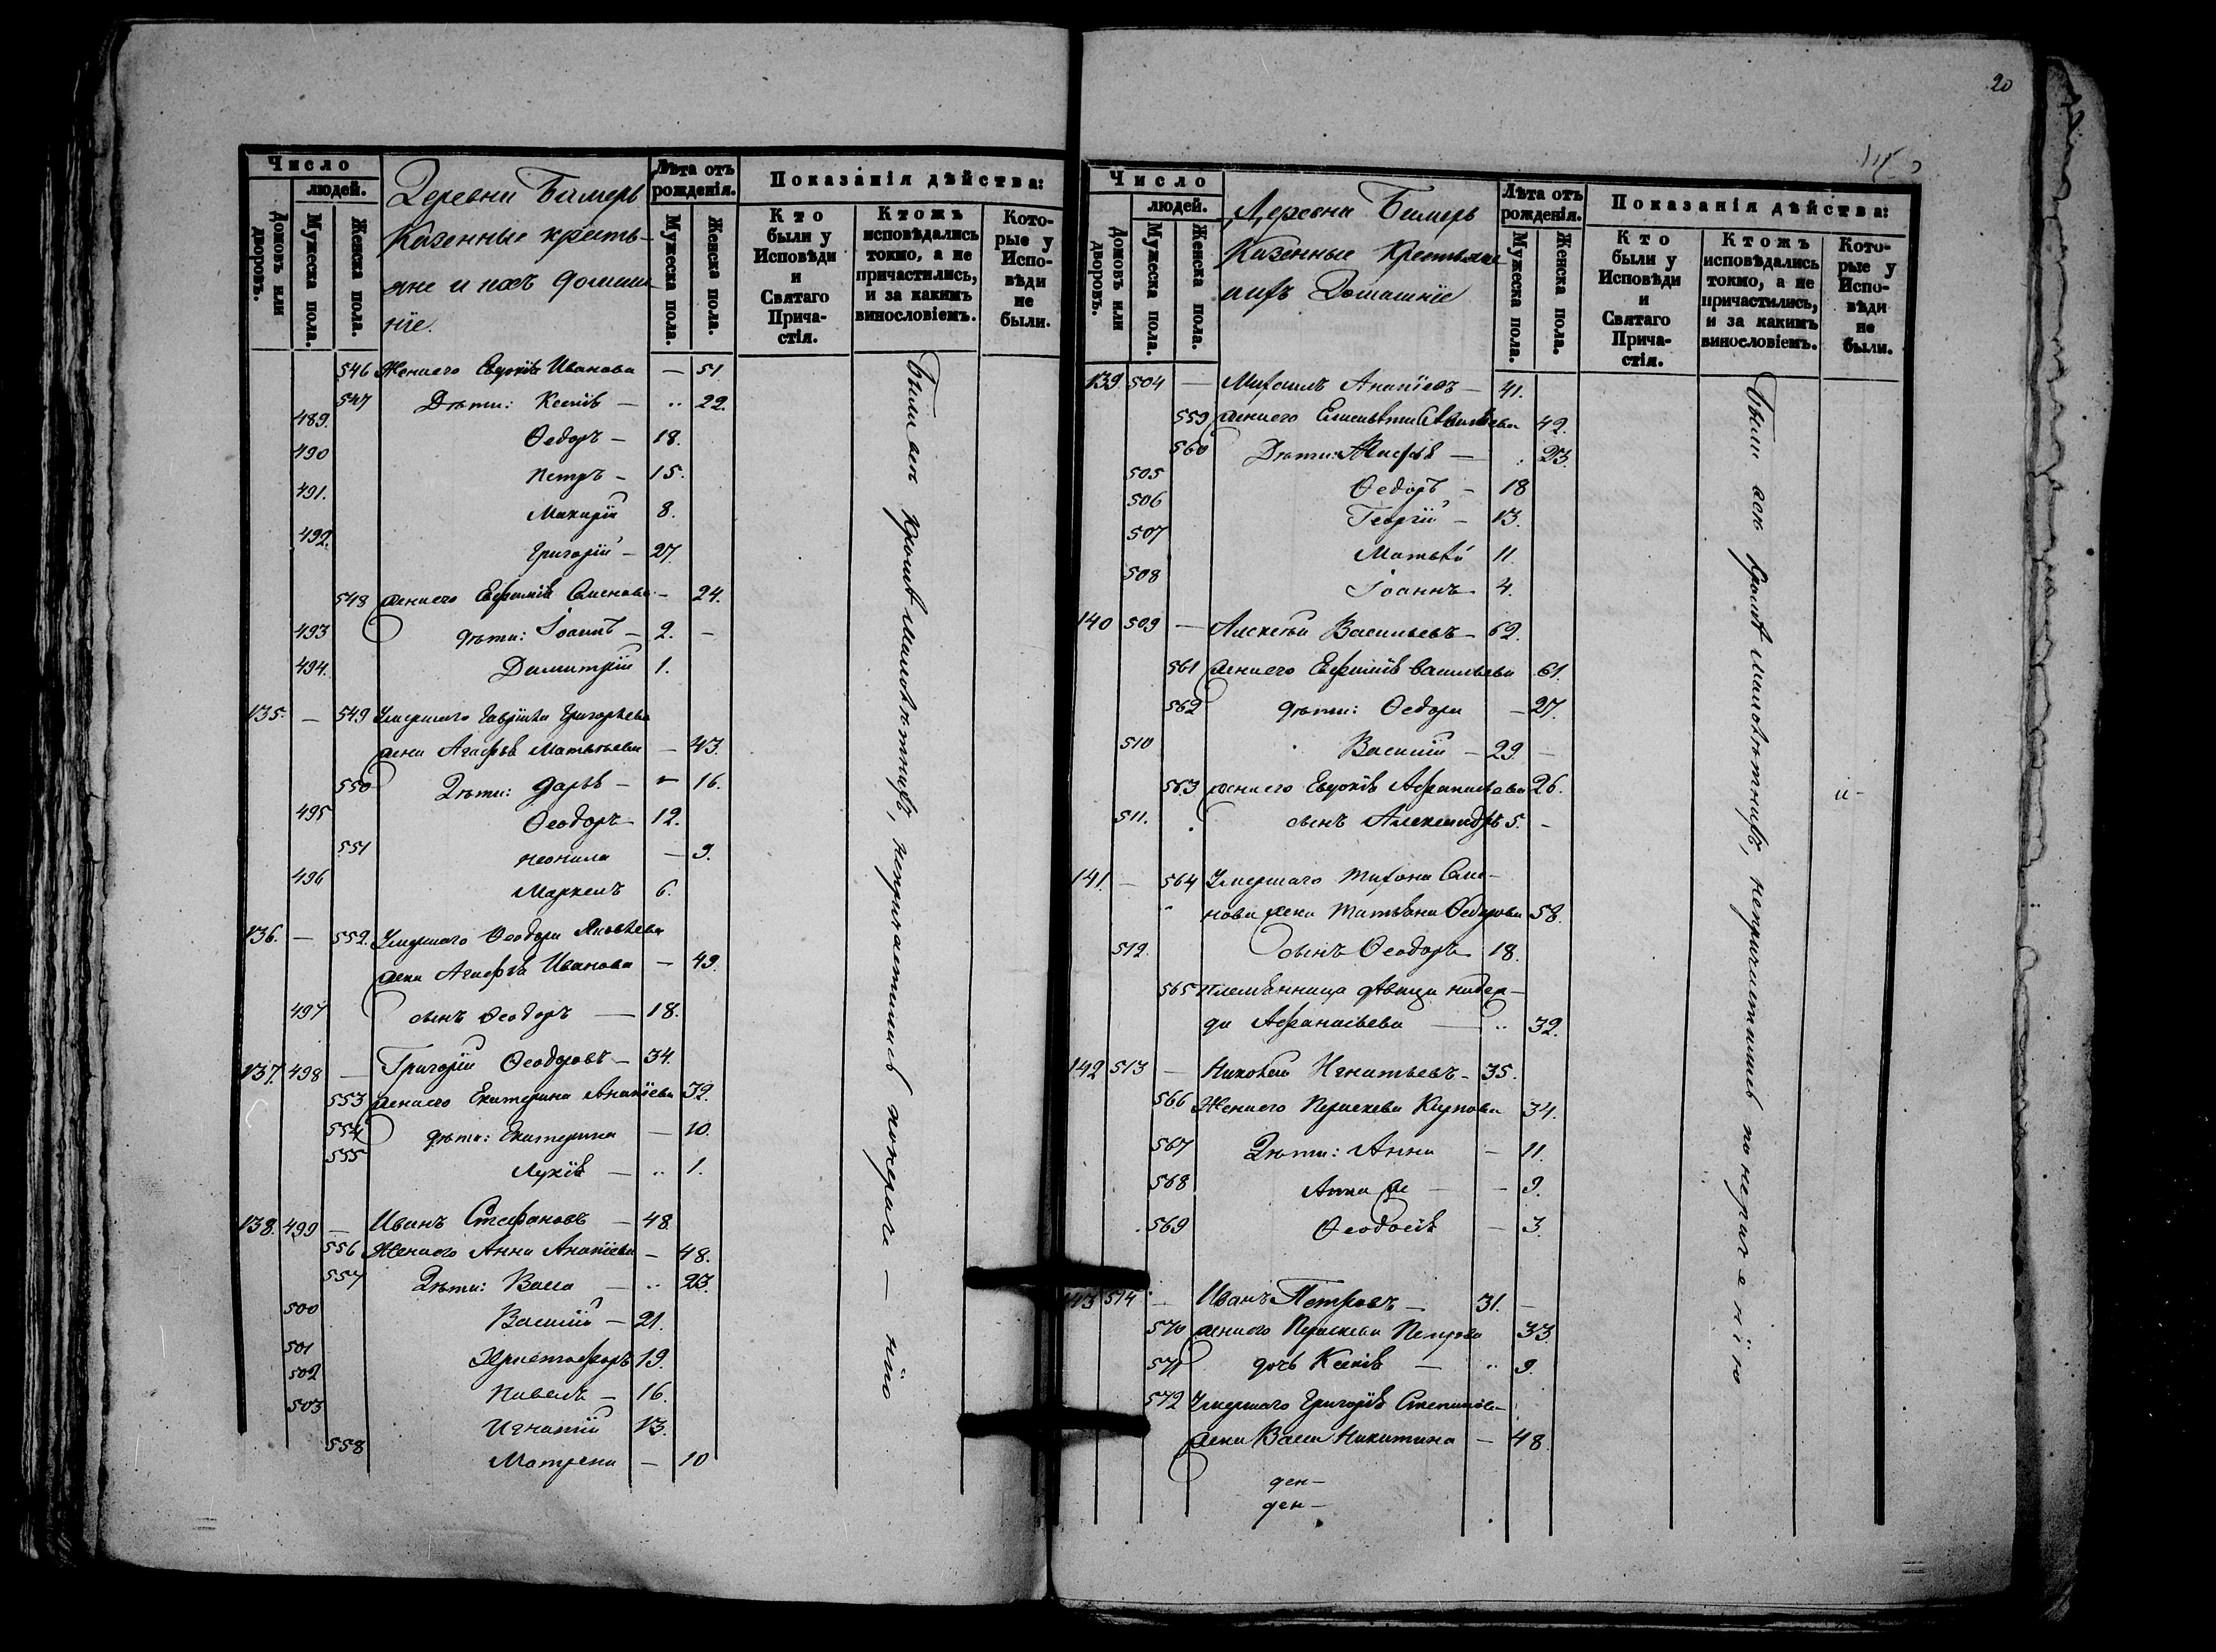 Число
людей.
Домовъ или дворовъ.
Мужеска пола.
Женска пола.
Деревни Бимерь
Казенные кресть-
яне и ихъ домаш-
ніе.
Лѣта отъ рожденія.
Мужеска пола.
Женска пола.
Показанія дѣйства:
Кто были у Исповѣди и Святаго Прича- стія.
Ктожъ исповѣдались токмо, а не причастились, и за какимъ винословіемъ.
Кото- рые у Испо- вѣди не были.
546 Жена его Евдокія Иванова — 51
547 Дѣти: Ксенія — .. 22.
489. Ѳедоръ — 18.
490 Петръ — 15.
491. Макарій 8.
492. Григорій — 27.
548 жена его Евфимія Семенова — 24.
493 дѣти: Іоаннъ — 2. —
494. Димитрій 1.
135. — 549 Умершаго Гавріила Григорьева
жена Агафья Матвѣева — 43.
550 Дѣти: Дарья — 16.
495 Ѳеодоръ — 12.
551 Неонила — 9.
496 Маркелъ 6.
136. — 552. Умершаго Ѳеодора Яковлева
жена Агафья Иванова — 49.
497 сынъ Ѳеодоръ — 18.
137. 498 — Григорій Ѳеодоровъ — 34.
553 жена его Екатерина Ананіева 32.
554 дѣти: Екатерина — 10.
555 Лукія — .. 1.
138. 499 — Иванъ Стефановъ — 48.
556 Жена его Анна Ананіева — 48.
557 Дѣти: Васса — .. 23.
500 Василій — 21.
501 Христофоръ 19.
502 Павелъ — 16.
503 Игнатій 13.
558 Матрена — 10
Были всѣ кромѣ малолѣтнихъ, непричастились по нераче — нію
20
Число
людей.
Домовъ или дворовъ.
Мужеска пола.
Женска пола.
Деревни Бимерь
Казенные Крестьяне
и ихъ Домашніе
Лѣта отъ рожденія.
Мужеска пола.
Женска пола.
Показанія дѣйства:
Кто были у Исповѣди и Святаго Прича- стія.
Ктожъ исповѣдались токмо, а не причастились, и за какимъ винословіемъ.
Кото- рые у Испо- вѣди не были.
139. 504 — Михаилъ Ананіевъ — 41.
559 жена его Елисавета 42.
560 Дѣти: Агафья — . 23.
505 Ѳедоръ — 18
506 Георгій — 13.
507 Матвѣй 11.
508 Іоаннъ 4.
140 509 — Алексѣй Васильевъ — 62.
561 жена его Евфимія Васильева 61.
562 дѣти: Ѳедора — 27.
510 Василій — 29. —
563 жена его Евдокія Афанасьева 26.
511. сынъ Александръ 5. —
141. — 564 Умершаго Тихона Семе-
нова жена Татьяна Ѳедорова 58.
512. сынъ Ѳеодоръ 18.
565 Племянница дѣвица Надеж-
да Афанасьева — .. 32.
142 513 — Николай Игнатьевъ — 35.
566 Жена его Параскева Карпова 34.
567 Дѣти: Анна — 11.
568 Анна же — — 9.
569 Ѳеодосія — 3.
143 514 — Иванъ Петровъ — 31. —
570 жена его Параскева Петрова 33
571 дочь Ксенія — .. 9.
572 Умершаго Григорія Степанова
жена Васса Никитина — 48
ден —
ден —
Были всѣ кромѣ малолѣтнихъ, непричастились по нераченію